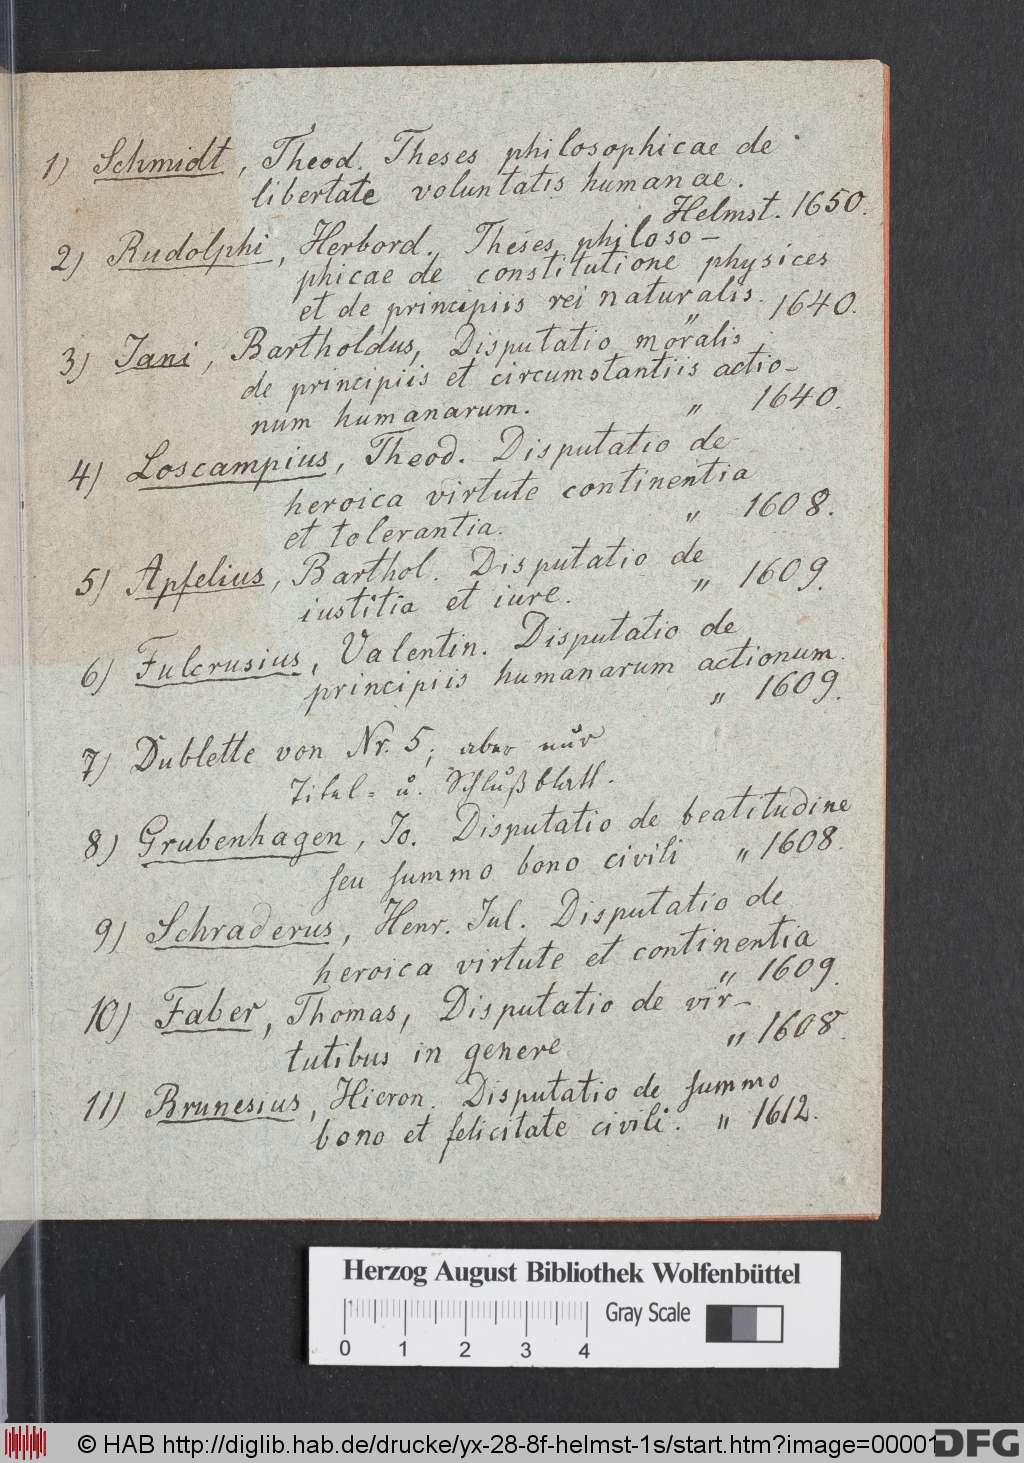 1) Schmidt, Theod. Theses philosophicae de
libertate voluntatis humanae.
Helmst. 1650.
2) Rudolphi, Herbord. Theses philoso-
phicae de constitutione physices
et de principiis rei naturalis. " 1640.
3) Jani, Bartholdus, Disputatio moralis
de principiis et circumstantiis actio-
num humanarum. " 1640.
4) Loscampius, Theod. Disputatio de
heroica virtute continentia
et tolerantia. " 1608.
5) Apfelius, Barthol. Disputatio de
iustitia et iure. " 1609.
6) Fulcrusius, Valentin. Disputatio de
principiis humanarum actionum.
" 1609.
7) Dublette von Nr. 5; aber nur
Titel- u. Schlußblatt.
8) Grubenhagen, Jo. Disputatio de beatitudine
seu summo bono civili " 1608.
9) Schraderus, Henr. Jul. Disputatio de
heroica virtute et continentia
" 1609.
10) Faber, Thomas, Disputatio de vir-
tutibus in genere " 1608.
11) Brunesius, Hieron. Disputatio de summo
bono et felicitate civili. " 1612.
Herzog August Bibliothek Wolfenbüttel
0 1 2 3 4 Gray Scale
© HAB http://diglib.hab.de/drucke/yx-28-8f-helmst-1s/start.htm?image=00001
DFG